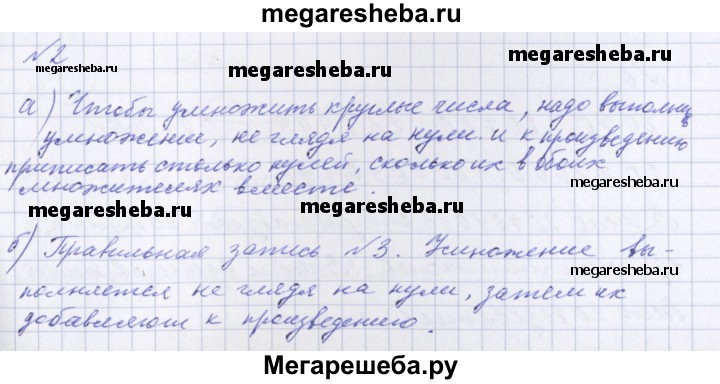 megaresheba.ru
№2
megaresheba.ru
megaresheba.ru
а) Чтобы умножить круглые числа, надо выполнив
умножение, не глядя на нули и к произведению
приписать столько нулей, сколько их в обоих
множителях вместе.
megaresheba.ru
megaresheba.ru
megaresheba.ru
б) Правильная запись №3. Умножение вы-
megaresheba.ru
полняется не глядя на нули, затем их
добавляют к произведению.
Мегарешеба.ру